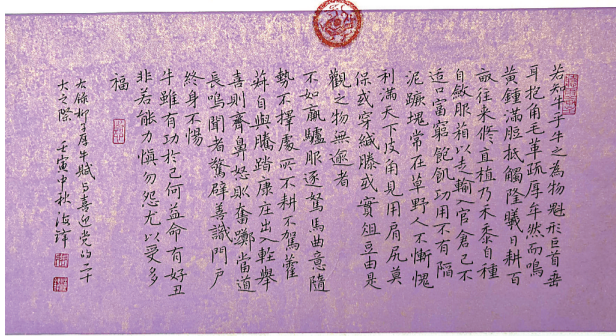 若知牛乎牛之為物魁形巨首垂
耳抱角毛革疏厚牟然而鳴
黃鍾滿脰抵觸隆曦日耕百
畝往來修直植乃禾黍自種
自斂服箱以走輸入官倉己不
适口富窮飽飢功用不有陷
泥蹶塊常在草野人不慚愧
利滿天下皮角見用肩尻莫
保或穿緘縢或實俎豆由是
觀之物無逾者
不如羸驢服逐駑馬曲意隨
勢不擇處所不耕不駕藿
菽自與騰踏康庄出入輕舉
喜則齊鼻怒則奮躑當道
長鳴聞者驚辟善識門戶
終身不惕
牛雖有功於己何益命有好丑
非若能力慎勿怨尤以受多
福
右錄柳子厚牛賦与喜迎党的二十
大之際 壬寅中秋